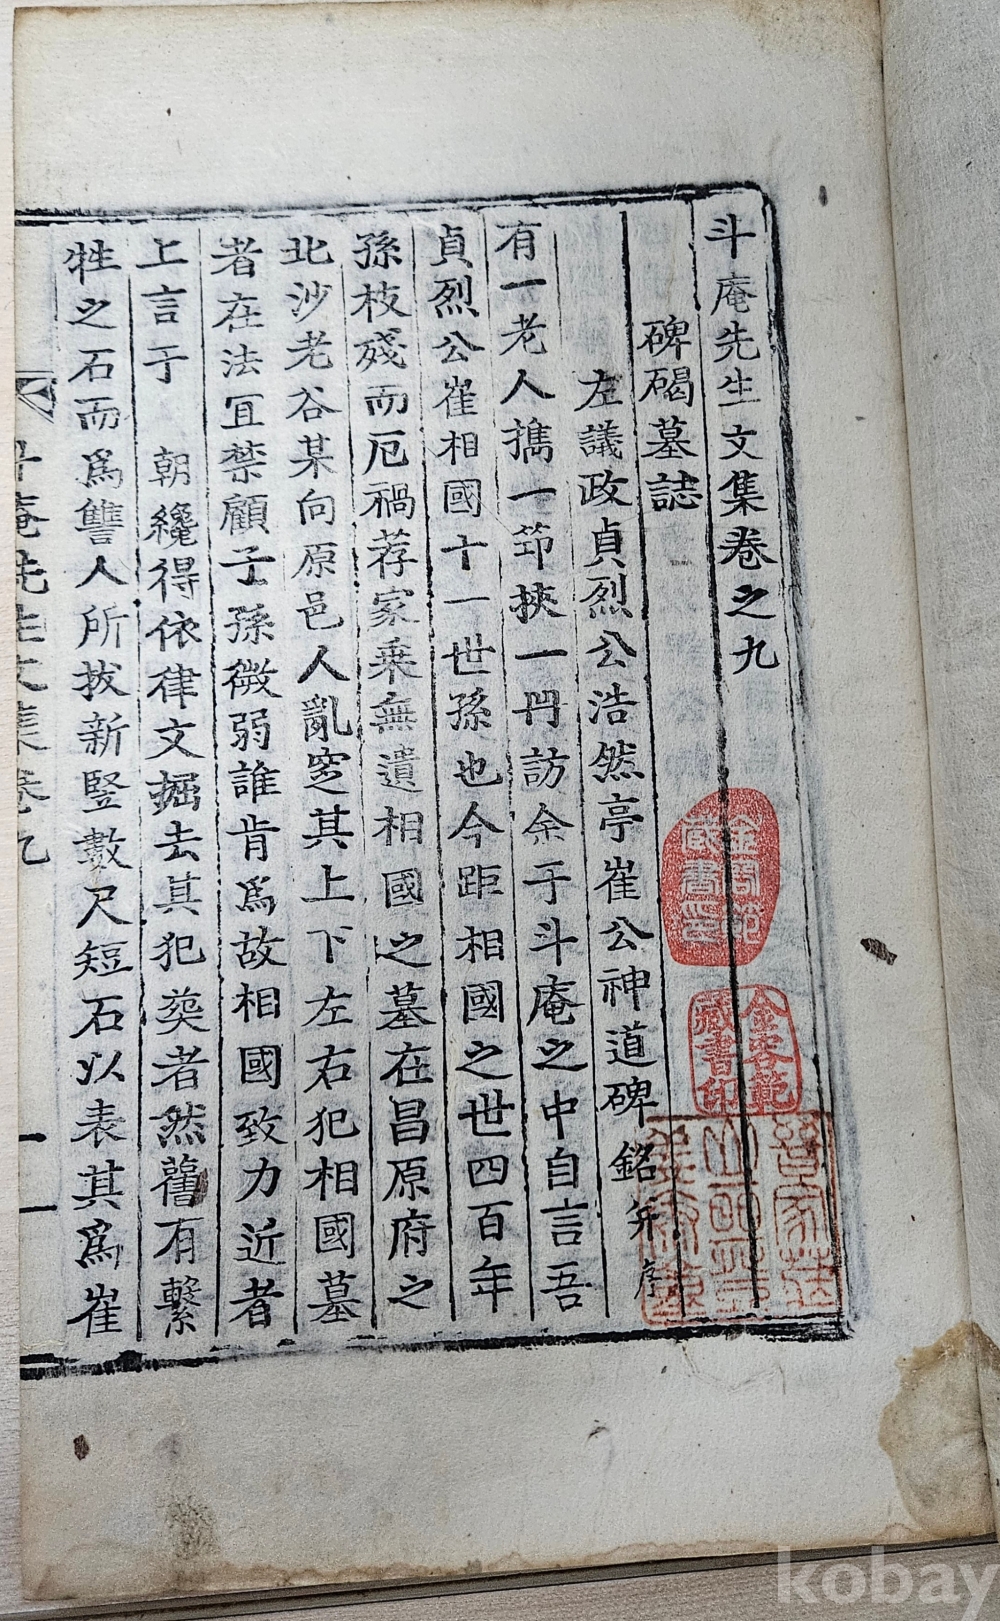 斗庵先生文集卷之九
碑碣墓誌
左議政貞烈公浩然亭崔公神道碑銘并序
有一老人擕一笻挾一冊訪余于斗庵之中自言吾
貞烈公崔相國十一世孫也今距相國之世四百年
孫枝殘而厄禍荐家乘無遺相國之墓在昌原府之
北沙老谷某向原邑人亂窆其上下左右犯相國墓
者在法宜禁顧子孫微弱誰肯爲故相國致力近者
上言于 朝纔得依律文掘去其犯葬者然舊有繫
牲之石而爲讐人所拔新竪數尺短石以表其爲崔
斗庵先生文集卷九
一
金容範
藏書印
kobay